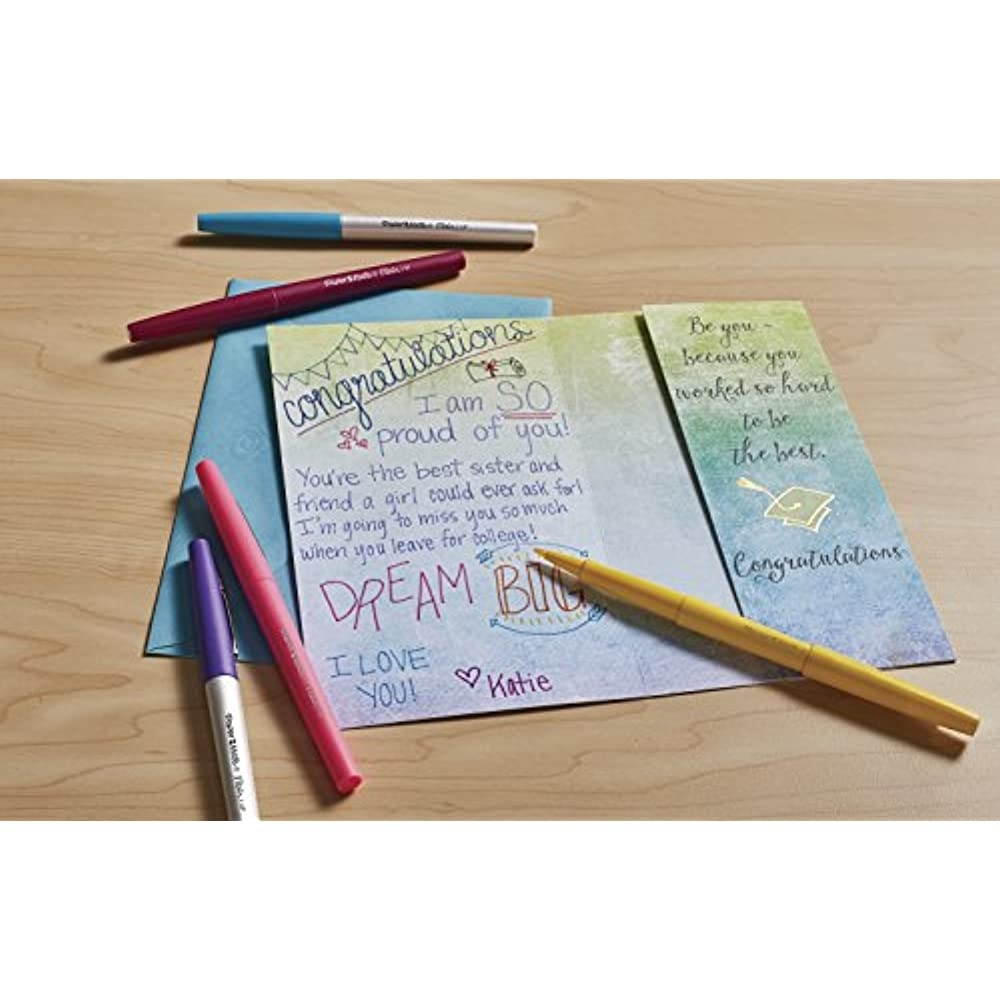 Paper Mate Flair
Paper Mate Flair
congratulations
I am SO
proud of you!
You're the best sister and
friend a girl could ever ask for!
I'm going to miss you so much
when you leave for college!
DREAM BIG
I LOVE
YOU!
Katie
Be you ~
because you
worked so hard
to be
the best.
Congratulations
Paper Mate Flair